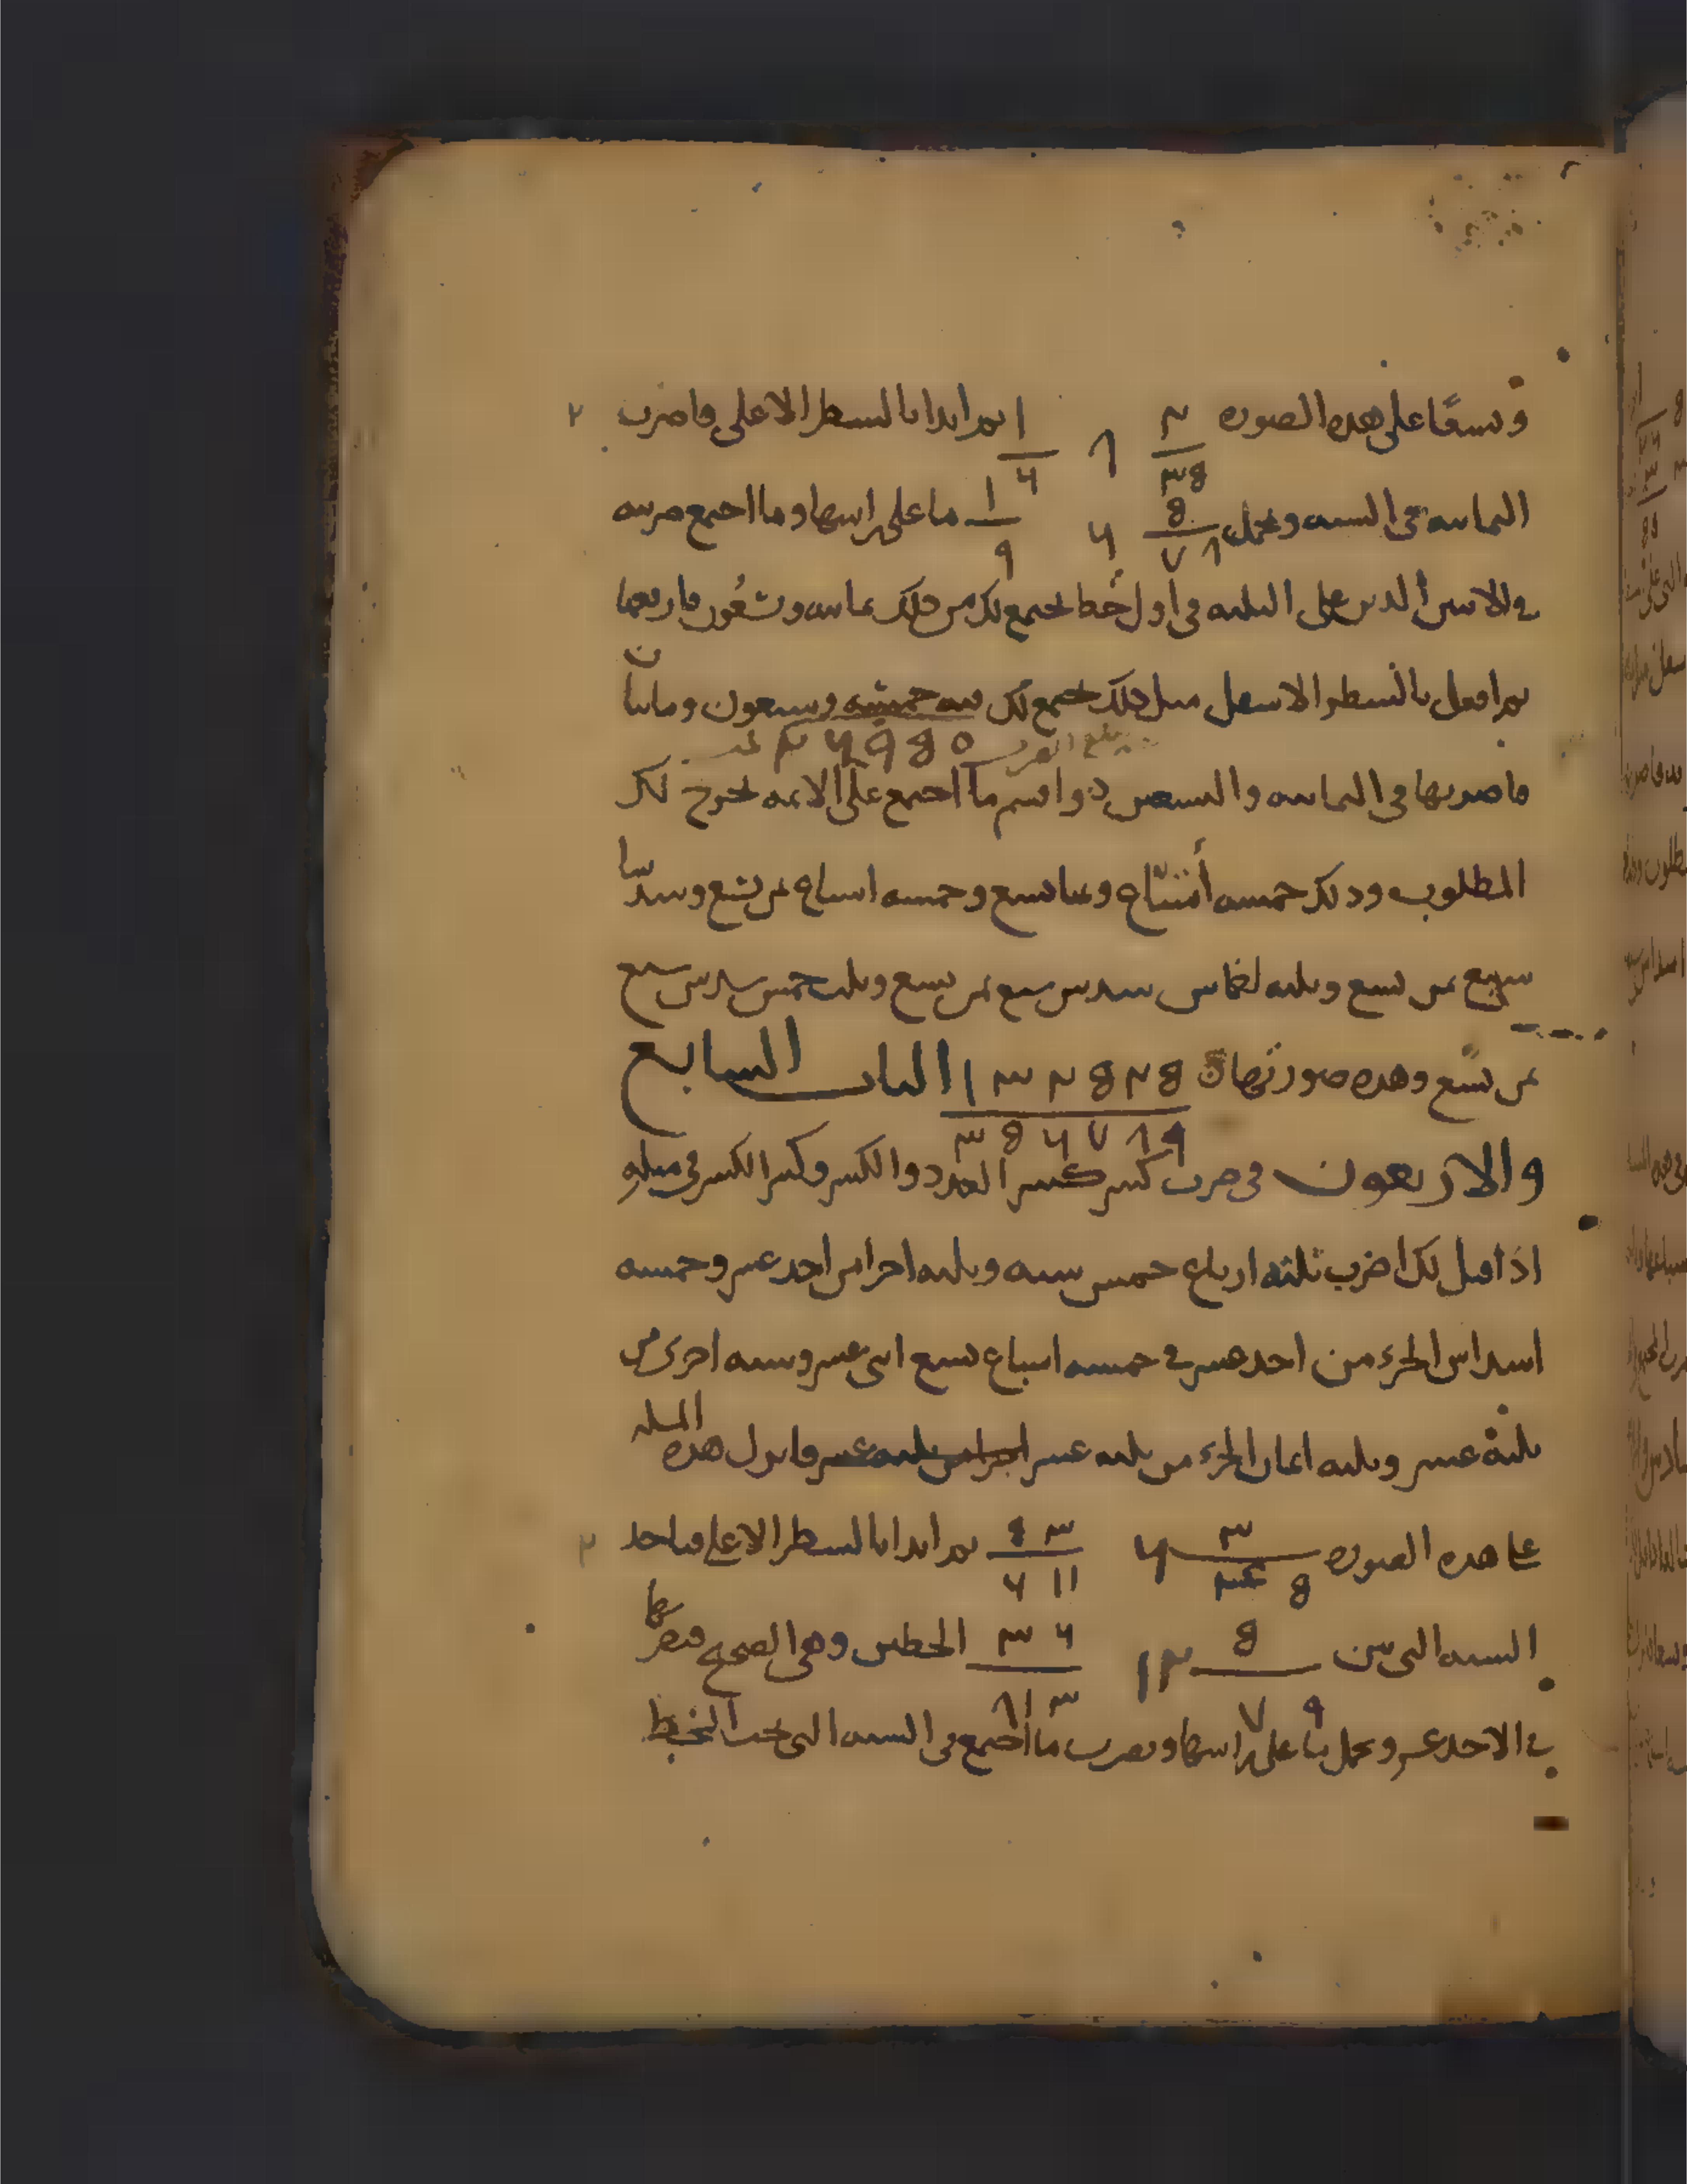 وتسعًا على هذه الصوره ثم ابدا بالسطر الاعلى فاضرب
الثمانيه في السته وتحمل ما على راسها وما اجتمع ضربته
في الاثنين الذين على الثلثه في اول خط يجتمع لك من ذلك ثمانيه وتسعون فارفعها
ثم افعل بالسطر الاسفل مثل ذلك يجتمع لك خمسه وسبعون ومائتان
فاضربها في الثمانيه والتسعين واقسم ما اجتمع على الائمه يخرج لك
المطلوب وذلك خمسه اتساع وثمنا تسع وخمسه اسباع ثمن تسع وسدسا
سبع ثمن تسع وثلثه اخماس سدس سبع ثمن تسع وثلث خمس سدس سبع
ثمن تسع وهذه صورتها الباب السابع
والاربعون في ضرب كسر كسر العدد والكسر وكسر الكسر في مثله
اذا قيل لك اضرب ثلثه ارباع خمس سته وثلثه اجزا من احد عشر وخمسه
اسداس الجزء من احد عشر في خمسه اسباع تسع اثنى عشر وسته اجزى من
ثلثة عشر وثلثه اثمان الجزء من ثلثه عشر فانزل هذه المسله
على هذه الصوره ثم ابدا بالسطر الاعلى فتاخذ
السته التي بين الخطين وهي الصحيح فتضربها
في الاحد عشر وتحمل ما على راسها وتضرب ما اجتمع في السته التي تحت الخط